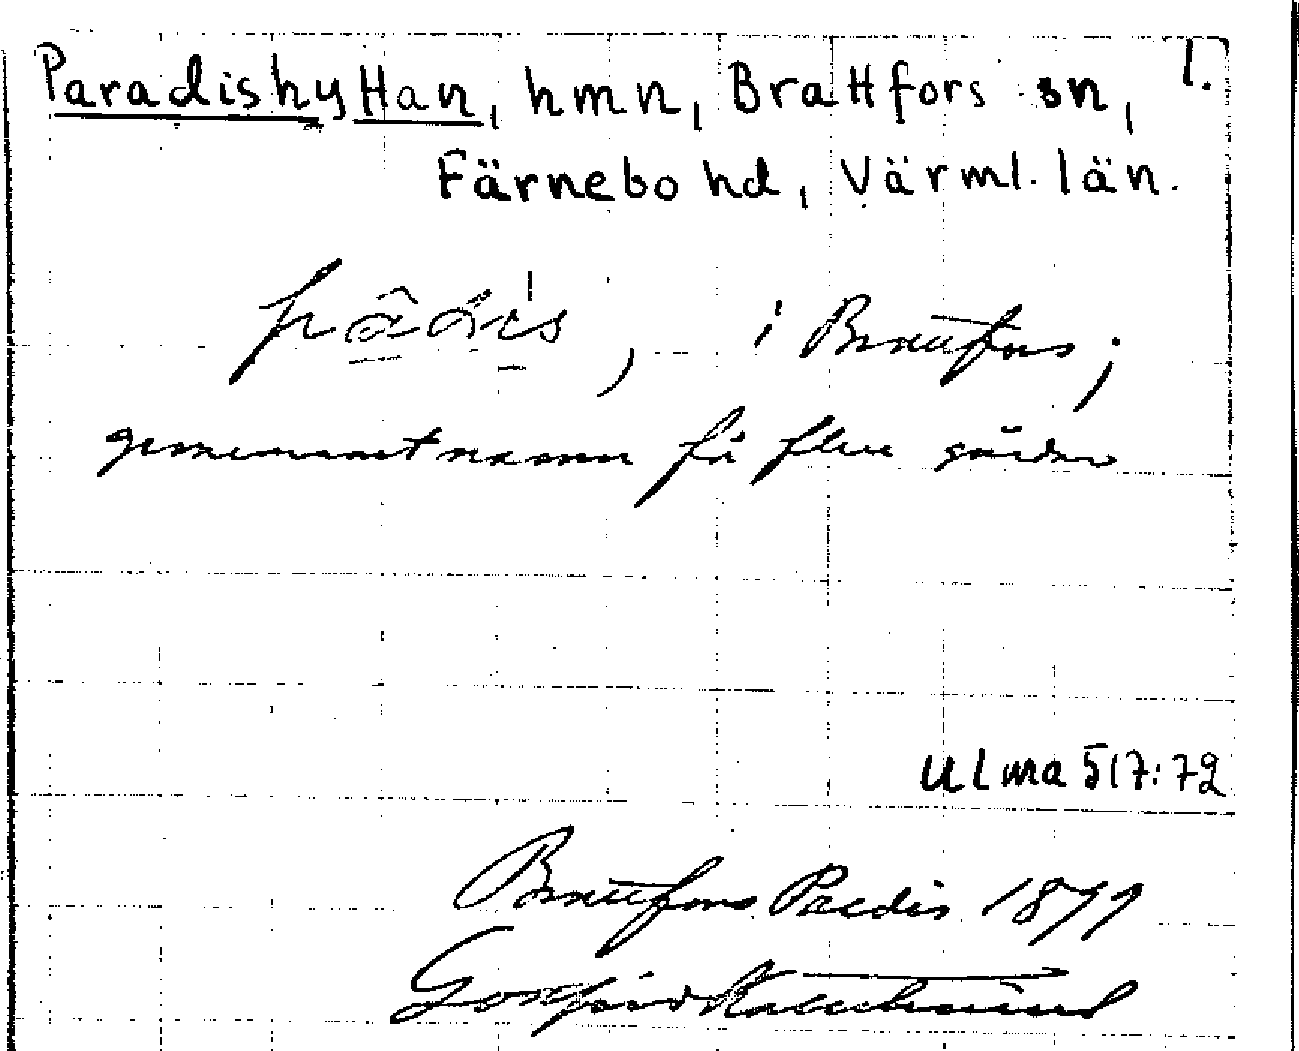 Paradishyttan, hmn, Brattfors sn, 1.
Färnebo hd, Värml. län.
i Brattfors;
gemensamt namn på flere gårdar
Ulma 517:72
Brattfors Paedis 1899
Gottfrid Kallstenius